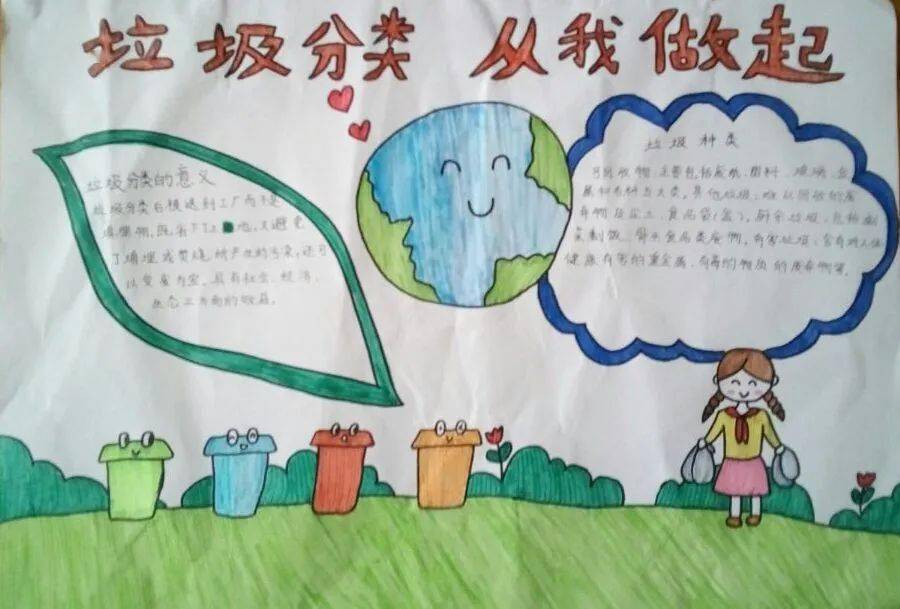 垃圾分类 从我做起
垃圾分类的意义
垃圾分类后被送到工厂而不是
填埋场,既省下了土地,又避免
了填埋或焚烧所产生的污染,还可
以变废为宝。具有社会、经济、
生态三方面的效益。
垃圾种类
可回收物:主要包括废纸、塑料、玻璃、金
属和布料五大类。其他垃圾:难以回收的废
弃物及尘土、食品袋(盒)。厨余垃圾:包括剩
菜剩饭、骨头食品类废物。有害垃圾:含有对人体
健康有害的重金属、有毒的物质的废弃物等。